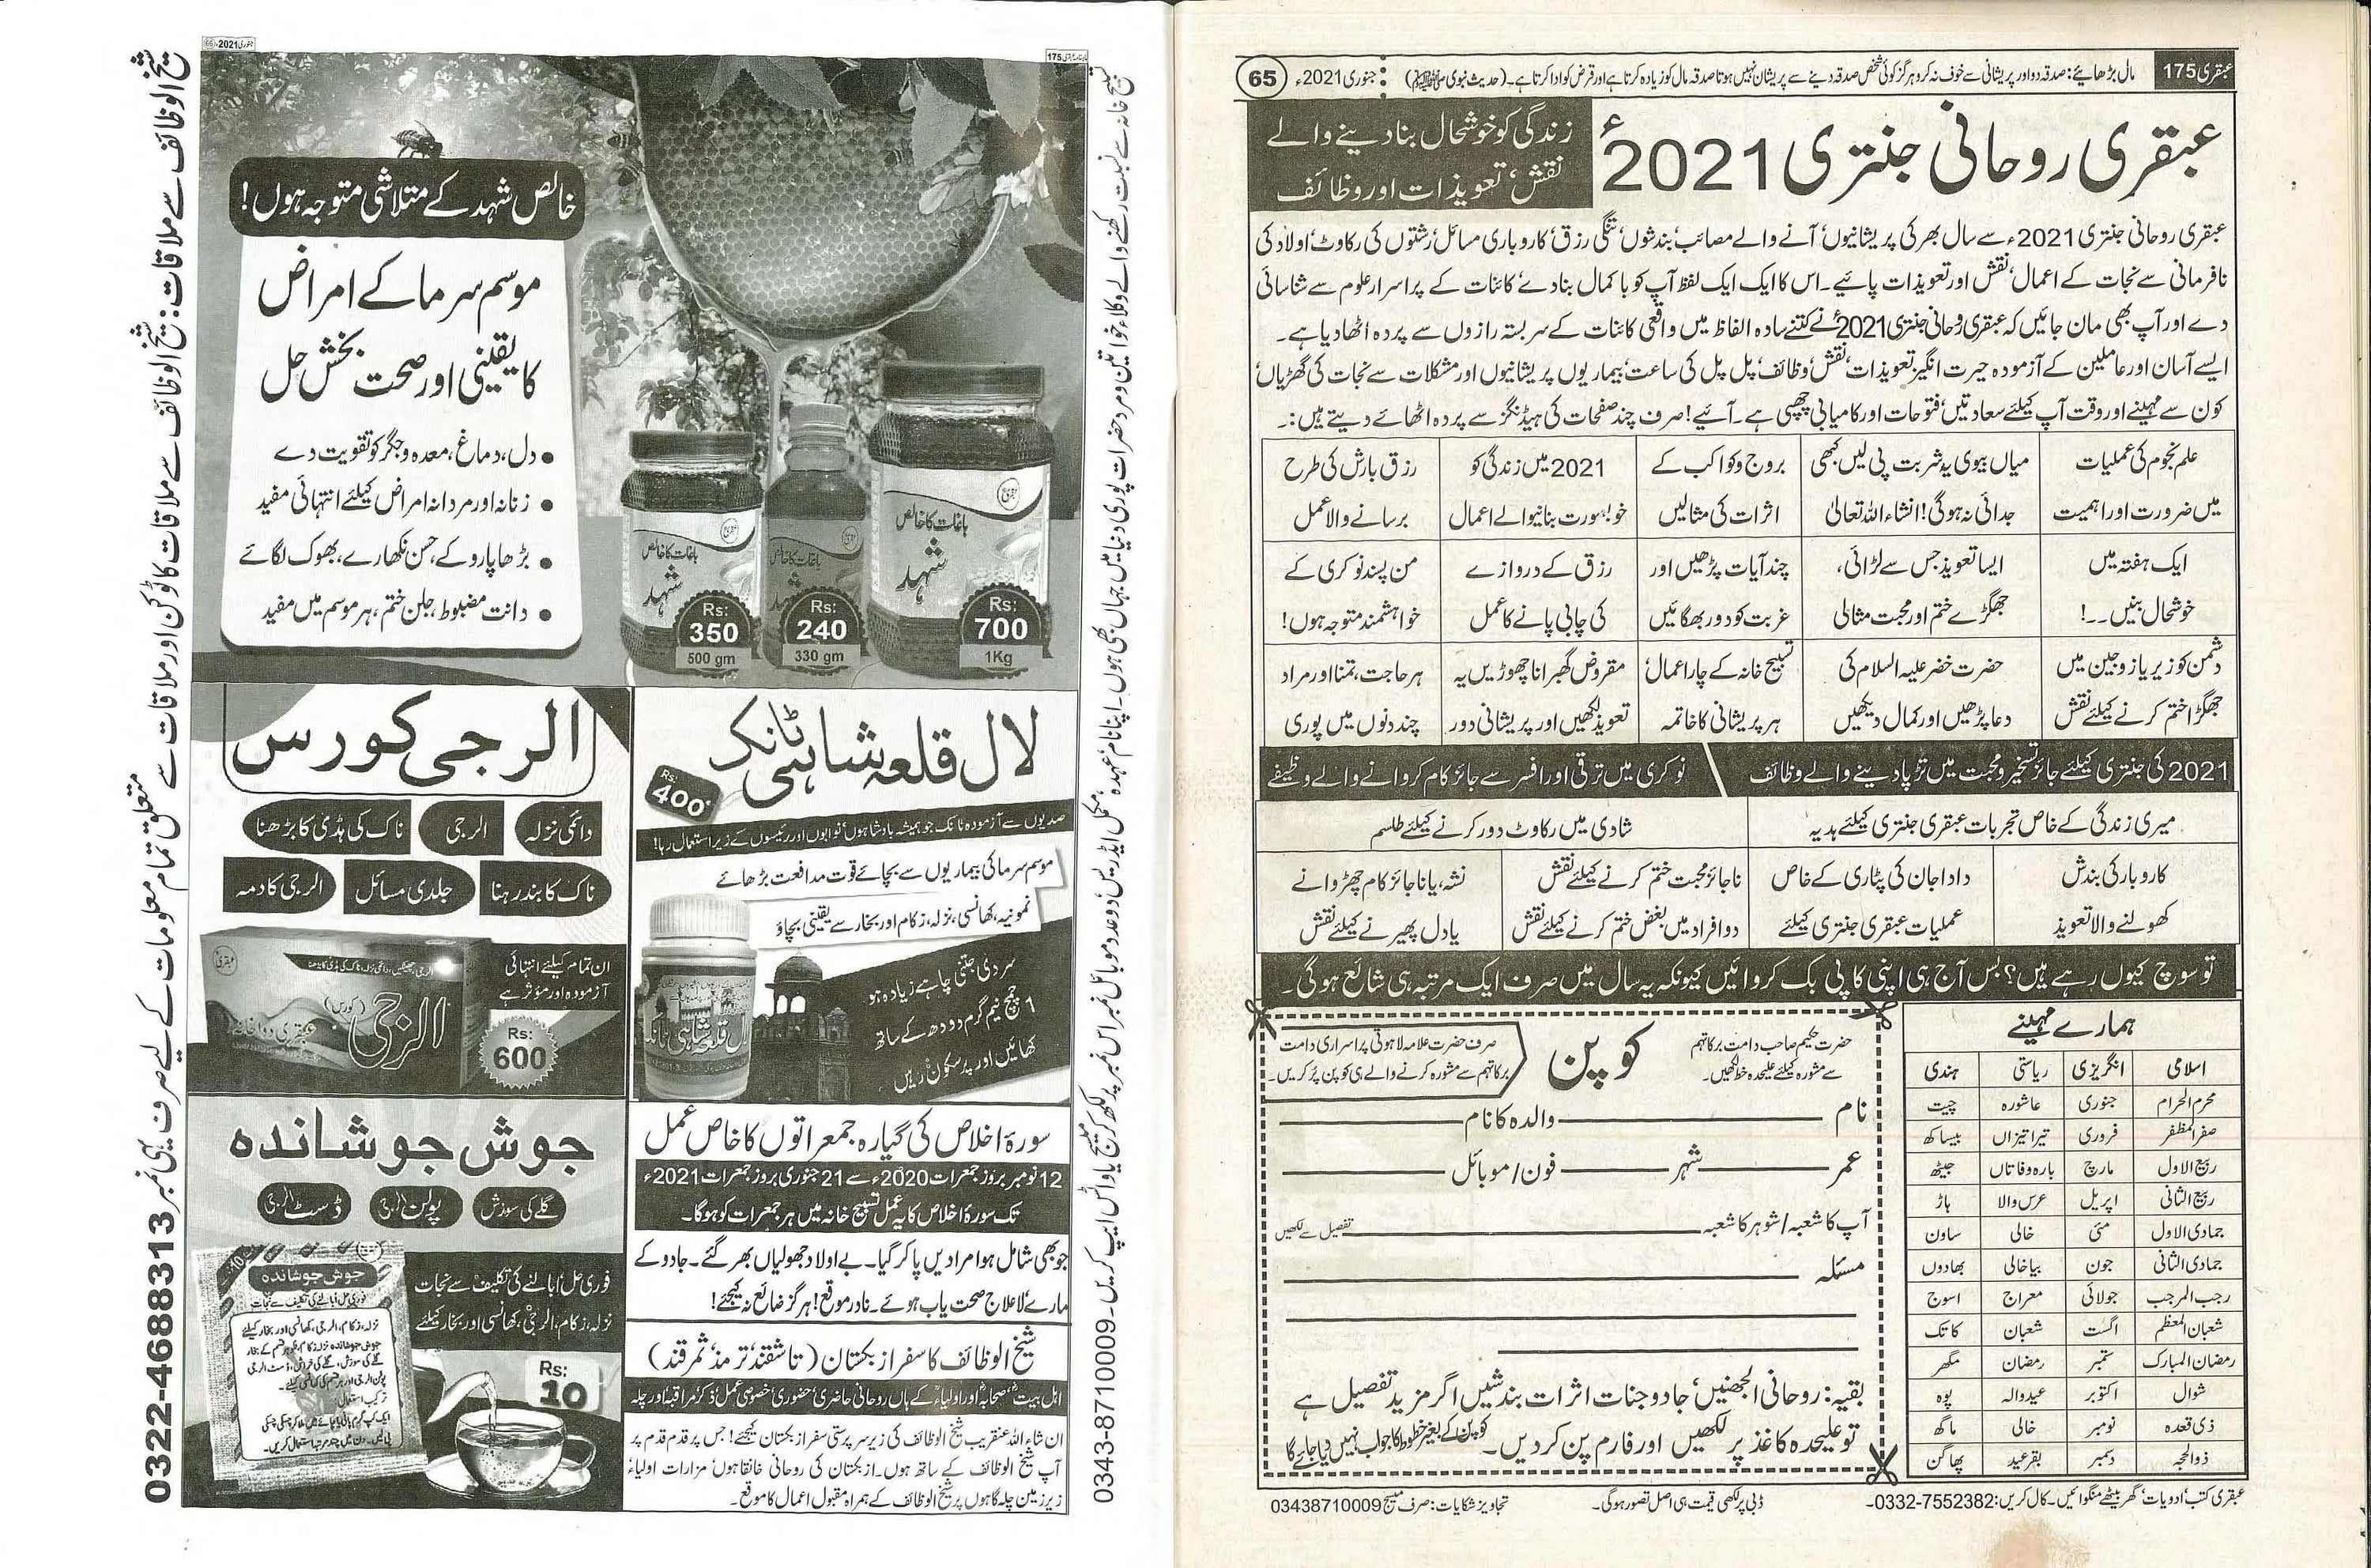 عبقری 175
مال بڑھائیے: صدقہ دو اور پریشانی سے خوف نہ کرو ہرگز کوئی شخص صدقہ دینے سے پریشان نہیں ہوتا صدقہ مال کو زیادہ کرتا ہے اور قرض کو ادا کرتا ہے۔ (حدیث نبوی ﷺ)
جنوری 2021ء
65
عبقری روحانی جنتری 2021ء
زندگی کو خوشحال بنا دینے والے
نقش، تعویذات اور وظائف
عبقری روحانی جنتری 2021ء سے سال بھر کی پریشانیوں، آنے والے مصائب، بندشوں، تنگی رزق، کاروباری مسائل، رشتوں کی رکاوٹ، اولاد کی
نافرمانی سے نجات کے اعمال، نقش اور تعویذات پائیے۔ اس کا ایک ایک لفظ آپ کو باکمال بنا دے گا کائنات کے پراسرار علوم سے شناسائی
دے اور آپ بھی مان جائیں کہ عبقری روحانی جنتری 2021ء نے کتنے سادہ الفاظ میں واقعی کائنات کے سربستہ رازوں سے پردہ اٹھا دیا ہے۔
ایسے آسان اور عاملین کے آزمودہ حیرت انگیز تعویذات، نقش، وظائف، پل پل کی ساعت، بیماریوں پریشانیوں اور مشکلات سے نجات کی گھڑیاں
کون سے مہینے اور وقت آپ کیلئے سعادتیں، فتوحات اور کامیابی چھپی ہے۔ آئیے! صرف چند صفحات کی ہیڈنگز سے پردہ اٹھائے دیتے ہیں:۔
علم نجوم کی عملیات
میں ضرورت اور اہمیت
میاں بیوی یہ شربت پی لیں کبھی
جدائی نہ ہوگی! انشاء اللہ تعالیٰ
بروج و کواکب کے
اثرات کی مثالیں
2021 میں زندگی کو
خوبصورت بنانیوالے اعمال
رزق بارش کی طرح
برسانے والا عمل
ایک ہفتہ میں
خوشحال بنیں۔۔!
ایسا تعویذ جس سے لڑائی،
جھگڑے ختم اور محبت مثالی
چند آیات پڑھیں اور
غربت کو دور بھگائیں
رزق کے دروازے
کی چابی پانے کا عمل
من پسند نوکری کے
خواہشمند متوجہ ہوں!
دشمن کو زیر یا زوجین میں
جھگڑا ختم کرنے کیلئے نقش
حضرت خضر علیہ السلام کی
دعا پڑھیں اور کمال دیکھیں
تسبیح خانہ کے چار اعمال
ہر پریشانی کا خاتمہ
مقروض گھبرانا چھوڑیں یہ
تعویذ لکھیں اور پریشانی دور
ہر حاجت، تمنا اور مراد
چند دنوں میں پوری
2021 کی جنتری کیلئے جائز تسخیر و محبت میں تڑپا دینے والے وظائف
نوکری میں ترقی اور افسر سے جائز کام کروانے والے وظیفے
میری زندگی کے خاص تجربات عبقری جنتری کیلئے ہدیہ
شادی میں رکاوٹ دور کرنے کیلئے طلسم
کاروبار کی بندش
کھولنے والا تعویذ
دادا جان کی پٹاری کے خاص
عملیات عبقری جنتری کیلئے
ناجائز محبت ختم کرنے کیلئے نقش
دو افراد میں بغض ختم کرنے کیلئے نقش
نشہ، یا ناجائز کام چھڑوانے
یا دل پھیرنے کیلئے نقش
تو سوچ کیوں رہے ہیں؟ بس آج ہی اپنی کاپی بک کروائیں کیونکہ یہ سال میں صرف ایک مرتبہ ہی شائع ہوگی۔
ہمارے مہینے
اسلامی انگریزی ریاستی ہندی
محرم الحرام جنوری عاشورہ چیت
صفر المظفر فروری تیرا تیزاں بیساکھ
ربیع الاول مارچ بارہ وفاتاں جیٹھ
ربیع الثانی اپریل عرس والا ہاڑ
جمادی الاول مئی خالی ساون
جمادی الثانی جون بیاخالی بھادوں
رجب المرجب جولائی معراج اسوج
شعبان المعظم اگست شعبان کاتک
رمضان المبارک ستمبر رمضان مگھر
شوال اکتوبر عیدوالہ پوہ
ذی قعدہ نومبر خالی ماگھ
ذوالحجہ دسمبر بقر عید پھاگن
حضرت حکیم صاحب دامت برکاتہم
سے مشورہ کیلئے علیحدہ خط لکھیں۔
کوپن
صرف حضرت علامہ لاہوتی پراسراری دامت
برکاتہم سے مشورہ کرنے والے ہی کوپن پُر کریں۔
نام والدہ کا نام
عمر شہر فون/موبائل
آپ کا شعبہ/شوہر کا شعبہ تفصیل سے لکھیں
مسئلہ
بقیہ: روحانی الجھنیں، جادو جنات اثرات بندشیں اگر مزید تفصیل ہے
تو علیحدہ کاغذ پر لکھیں اور فارم پن کردیں۔ کوپن کے بغیر خطوط کا جواب نہیں دیا جائے گا
عبقری کتب، ادویات، گھر بیٹھے منگوائیں۔ کال کریں: 0332-7552382۔
ڈبی پر لکھی قیمت ہی اصل تصور ہوگی۔
تجاویز شکایات: صرف میسج 03438710009
جنوری 2021ء (66)
خالص شہد کے متلاشی متوجہ ہوں!
موسم سرما کے امراض
کا یقینی اور صحت بخش حل
• دل، دماغ، معدہ و جگر کو تقویت دے
• زنانہ اور مردانہ امراض کیلئے انتہائی مفید
• بڑھاپا روکے، حسن نکھارے، بھوک لگائے
• دانت مضبوط، جلن ختم، ہر موسم میں مفید
باغات کا خالص
شہد
Rs: 350
500 gm
باغات کا خالص
شہد
Rs: 240
330 gm
باغات کا خالص
شہد
Rs: 700
1Kg
لال قلعہ شاہی ٹانک
Rs: 400
صدیوں سے آزمودہ ٹانک جو ہمیشہ بادشاہوں، نوابوں اور رئیسوں کے زیر استعمال رہا!
موسم سرما کی بیماریوں سے بچائے قوت مدافعت بڑھائے
نمونیہ، کھانسی، نزلہ، زکام اور بخار سے یقینی بچاؤ
سردی جتنی چاہے زیادہ ہو
1 چمچ نیم گرم دودھ کے ساتھ
کھائیں اور پرسکون رہیں
لال قلعہ شاہی ٹانک
الرجی کورس
دائمی نزلہ
الرجی
ناک کی ہڈی کا بڑھنا
ناک کا بند رہنا
جلدی مسائل
الرجی کا دمہ
ان تمام کیلئے انتہائی
آزمودہ اور مؤثر ہے
Rs: 600
الرجی (کورس)
عبقری دواخانہ
سورۂ اخلاص کی گیارہ جمعراتوں کا خاص عمل
12 نومبر بروز جمعرات 2020ء سے 21 جنوری بروز جمعرات 2021ء
تک سورۂ اخلاص کا یہ عمل تسبیح خانہ میں ہر جمعرات کو ہوگا۔
جو بھی شامل ہوا مرادیں پا کر گیا۔ بے اولاد جھولیاں بھر گئے۔ جادو کے
مارے لاعلاج صحت یاب ہوئے۔ نادر موقع! ہرگز ضائع نہ کیجئے!
شیخ الوظائف کا سفر ازبکستان (تاشقند، ترمذ، ثمرقند)
اہل بیتؓ، صحابہؓ اور اولیاءؒ کے ہاں روحانی حاضری، حضوری، خصوصی عمل، ذکر، مراقبہ اور چلہ
ان شاء اللہ عنقریب شیخ الوظائف کی زیر سرپرستی سفر ازبکستان کیجئے! جس پر قدم قدم پر
آپ شیخ الوظائف کے ساتھ ہوں۔ ازبکستان کی روحانی خانقاہوں، مزارات اولیاءؒ
زیر زمین چلہ گاہوں پر شیخ الوظائف کے ہمراہ مقبول اعمال کا موقع۔
جوش جوشاندہ
گلے کی سوزش
پولن الرجی
ڈسٹ الرجی
فوری حل، ابالنے کی تکلیف سے نجات
نزلہ، زکام، الرجی، کھانسی اور بخار کیلئے
Rs: 10
جوش جوشاندہ
فوری حل، ابالنے کی تکلیف سے نجات
نزلہ، زکام، الرجی، کھانسی اور بخار کیلئے
ترکیب استعمال:
شیخ الوظائف سے ملاقات: شیخ الوظائف سے ملاقات کا ٹوکن اور ملاقات سے متعلق تمام معلومات کے لیے صرف یہی نمبر 0322-4688313
تسبیح خانہ سے نسبت رکھنے والے وکلاء خواتین و مرد حضرات پوری دنیا میں جہاں بھی ہوں۔ اپنا نام، عہدہ، مکمل ایڈریس، دو عدد موبائل نمبر اس نمبر پر لکھ کر میسج یا واٹس ایپ کریں۔ 0343-8710009